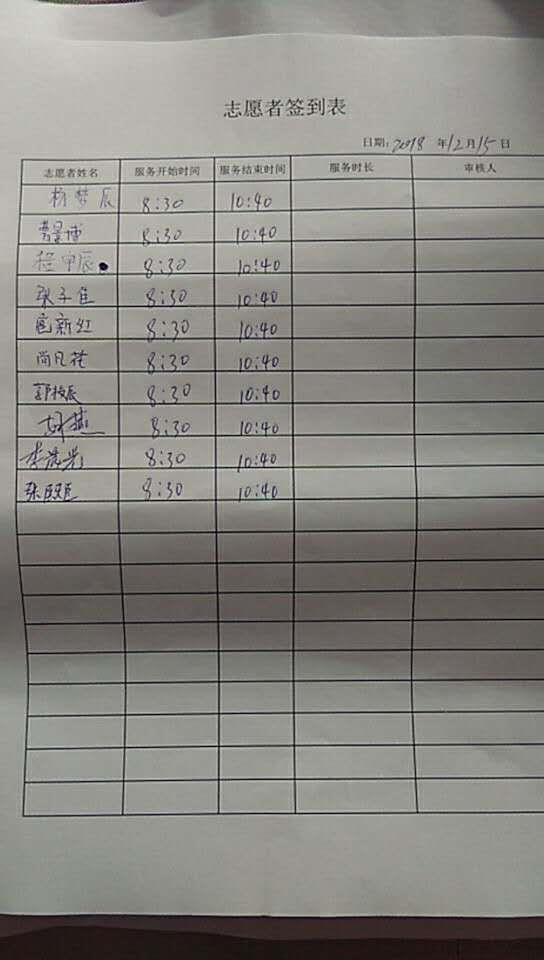 志愿者签到表
日期：2018 年12月15日
志愿者姓名 服务开始时间 服务结束时间 服务时长 审核人
杨梦辰 8:30 10:40
曹景博 8:30 10:40
程甲辰 8:30 10:40
张子佳 8:30 10:40
寇新红 8:30 10:40
尚凡花 8:30 10:40
8:30 10:40
胡燕 8:30 10:40
李晨光 8:30 10:40
张 8:30 10:40